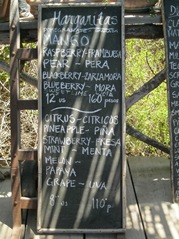 Margaritas
POMEGRANATE
MANGO
RASPBERRY-FRAMBUESA
PEAR - PERA
BLACKBERRY-ZARZAMORA
BLUEBERRY-MORA
12 us 160 pesos
CITRUS-CITRICOS
PINEAPPLE - PIÑA
STRAWBERRY-FRESA
MINT - MENTA
MELON -
PAPAYA
GRAPE - UVA
8 us 110 p